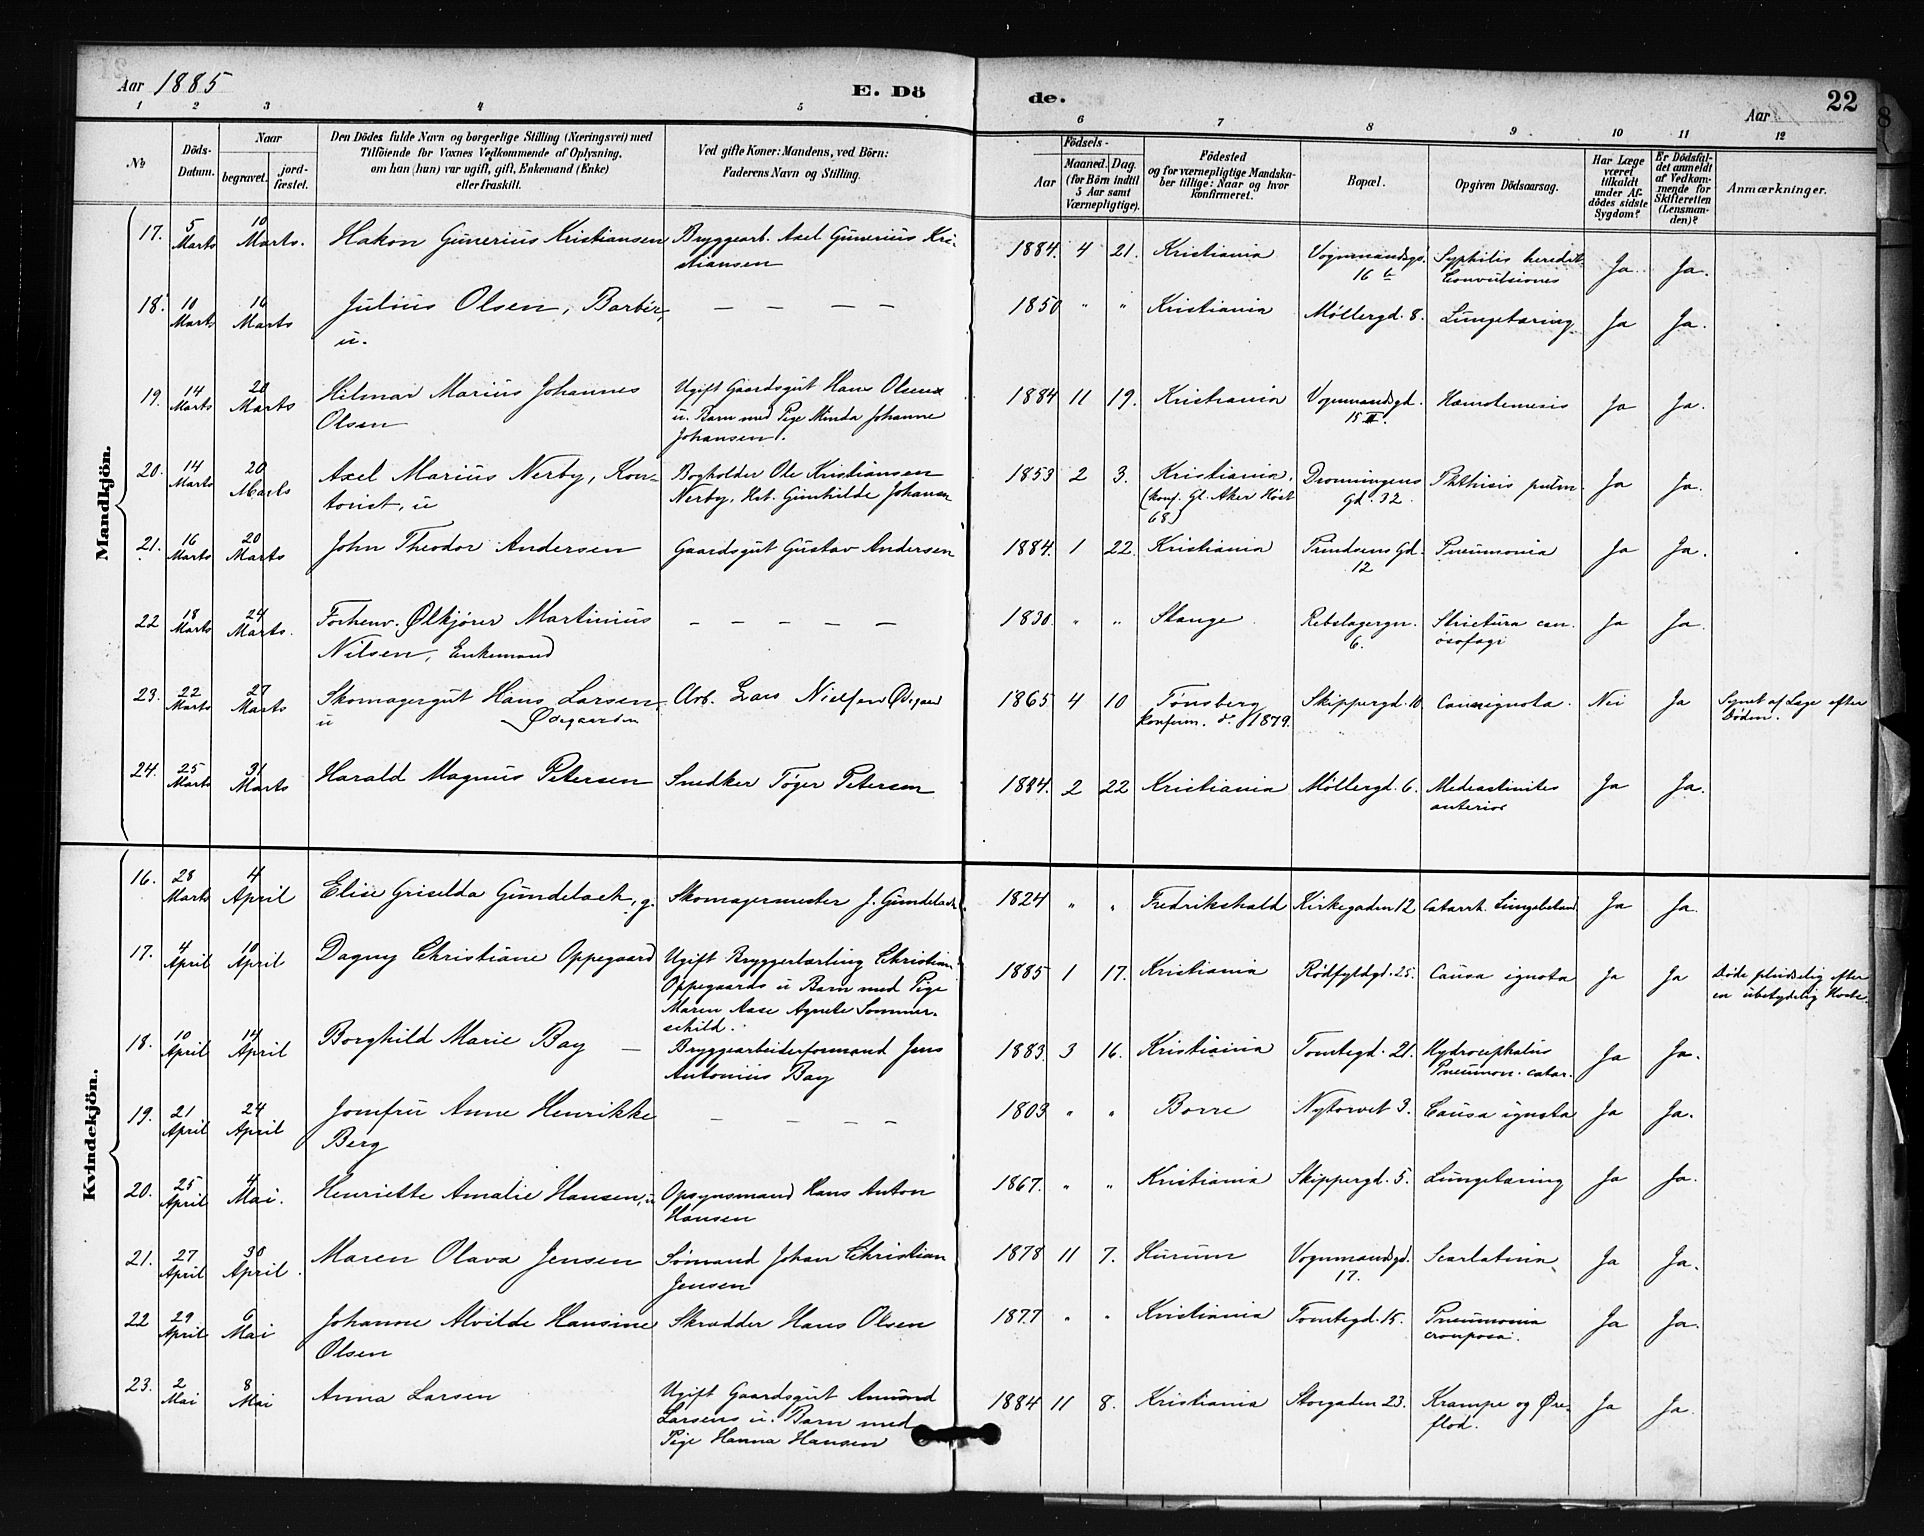 Aar 1885
E. Dö
de.
Aar
22
1 2 3 4 5 6 7 8 9 10 11 12
No
Döds-
Datum.
Naar
begravet.
jord-
fæstet.
Den Dödes fulde Navn og borgerlige Stilling (Næringsvei) med
Tilföiende for Voxnes Vedkommende af Oplysning,
om han (hun) var ugift, gift, Enkemand (Enke)
eller fraskilt.
Ved gifte Koner: Mandens, ved Börn:
Faderens Navn og Stilling.
Födsels-
Aar
Maaned.
Dag.
(for Börn indtil
5 Aar samt
Værnepligtige).
Födested
og for værnepligtige Mandska-
ber tillige: Naar og hvor
konfirmeret.
Bopæl.
Opgiven Dödsaarsag.
Har Læge
været
tilkaldt
under Af-
dödes sidste
Sygdom?
Er Dödsfal-
det anmeldt
af Vedkom-
mende for
Skifteretten
(Lensman-
den)?
Anmærkninger.
Mandkjön.
17. 5 Marts 10 Marts. Hakon Gunerius Kristiansen Bryggearb. Axel Gunerius Kri- 1884. 4 21. Kristiania Vognmandsg. Syphilis heredit. Ja Ja.
stiansen 16 b Convulsiones
18. 10 Marts 16 Marts Julius Olsen, Barbér, — — — — 1850 " " Kristiania Møllergd. 8. Lungetæring Ja Ja.
u.
19. 14 Marts 20 Marts Hilmar Marius Johannes Ugift Gaardsgut Hans Olsens 1884 11 19. Kristiania Vognmandsgd. Hæmatemesis Ja Ja.
Olsen u. Barn med Pige Minda Johanne 15 II.
Johansen.
20. 14 Marts 20 Marts Axel Marius Nerby, Kon- Bogholder Ole Kristiansen 1853 2 3. Kristiania, Dronningens Phthisis pulm. Ja Ja.
torist, u Nerby, Kat. Gunhilde Johansen (konf. Gl. Aker Høst Gd. 32
68)
21. 16 Marts 20 Marts John Theodor Andersen Gaardsgut Gustav Andersen 1884. 1 22. Kristiania Prindsens Gd. Pneumonia Ja Ja.
12
22 18 Marts 24 Marts. Forhenv. Ølkjører Martinius — — — — — 1830. " " Stange Rebslagergn. Strictura can. Ja Ja.
Nilsen, Enkemand 6. øsofagi
23. 22 Marts 27 Marts Skomagergut Hans Larsen, Arb. Lars Nielsen Ødegaard 1865 4 10 Tønsberg Skippergd. 10 Causa ignota. Nei Ja Synet af Læge efter
u Ødegaarden konfirm. d. 1879. Døden.
24. 25 Marts 31 Marts Harald Magnus Petersen Snedker Tøger Petersen 1884. 2 22 Kristiania Møllergd. 6. Mediastinites Ja Ja.
anterior
Kvindekjön.
16. 28 Marts 4 April Elise Griselda Gundelach, g. Skomagermester J. Gundelach. 1824 " " Fredrikshald Kirkegaden 12 Catarrh. Lungebetænd. Ja Ja.
17. 4 April 10 April Dagny Christiane Oppegaard Ugift Bryggerlærling Christian 1885 1 17. Kristiania Rødfyldgd. 25. Causa ignota Ja Ja Døde pludselig efter
Oppegaards u Barn med Pige en ubetydelig Hoste.
Maren Aase Agnete Sommer-
schild.
18. 10 April 14 April Borghild Marie Bay — Bryggearbeiderformand Jens 1883. 3 16. Kristiania Tomtegd. 21. Hydrocephalus Ja Ja.
Antonius Bay Pneumon. catar.
19. 21 April 24 April Jomfru Anne Henrikke — — — — 1803 " " Borre Nytorvet 3. Causa ignota Ja Ja.
Berg
20. 25 April 4 Mai. Henriette Amalie Hansen, u Opsynsmand Hans Anton 1867. " " Kristiania Skippergd. 5. Lungetæring Ja Ja.
Hansen
21. 27 April 30 April. Maren Olava Jensen Sømand Johan Christian 1878 11 7. Hurum Vognmandsgd. Scarlatina Ja Ja.
Jensen 17.
22 29 April 6 Mai Johanne Alvilde Hansine Skrædder Hans Olsen 1877 " " Kristiania Tomtegd. 15. Pneumonia Ja Ja.
Olsen crouposa.
23. 2 Mai 8 Mai Anna Larsen Ugift Gaardsgut Amund 1884 11 8. Kristiania Storgaden 23. Krampe og Øre- Ja Ja.
Larsens u. Barn med flod.
Pige Hanna Hansen